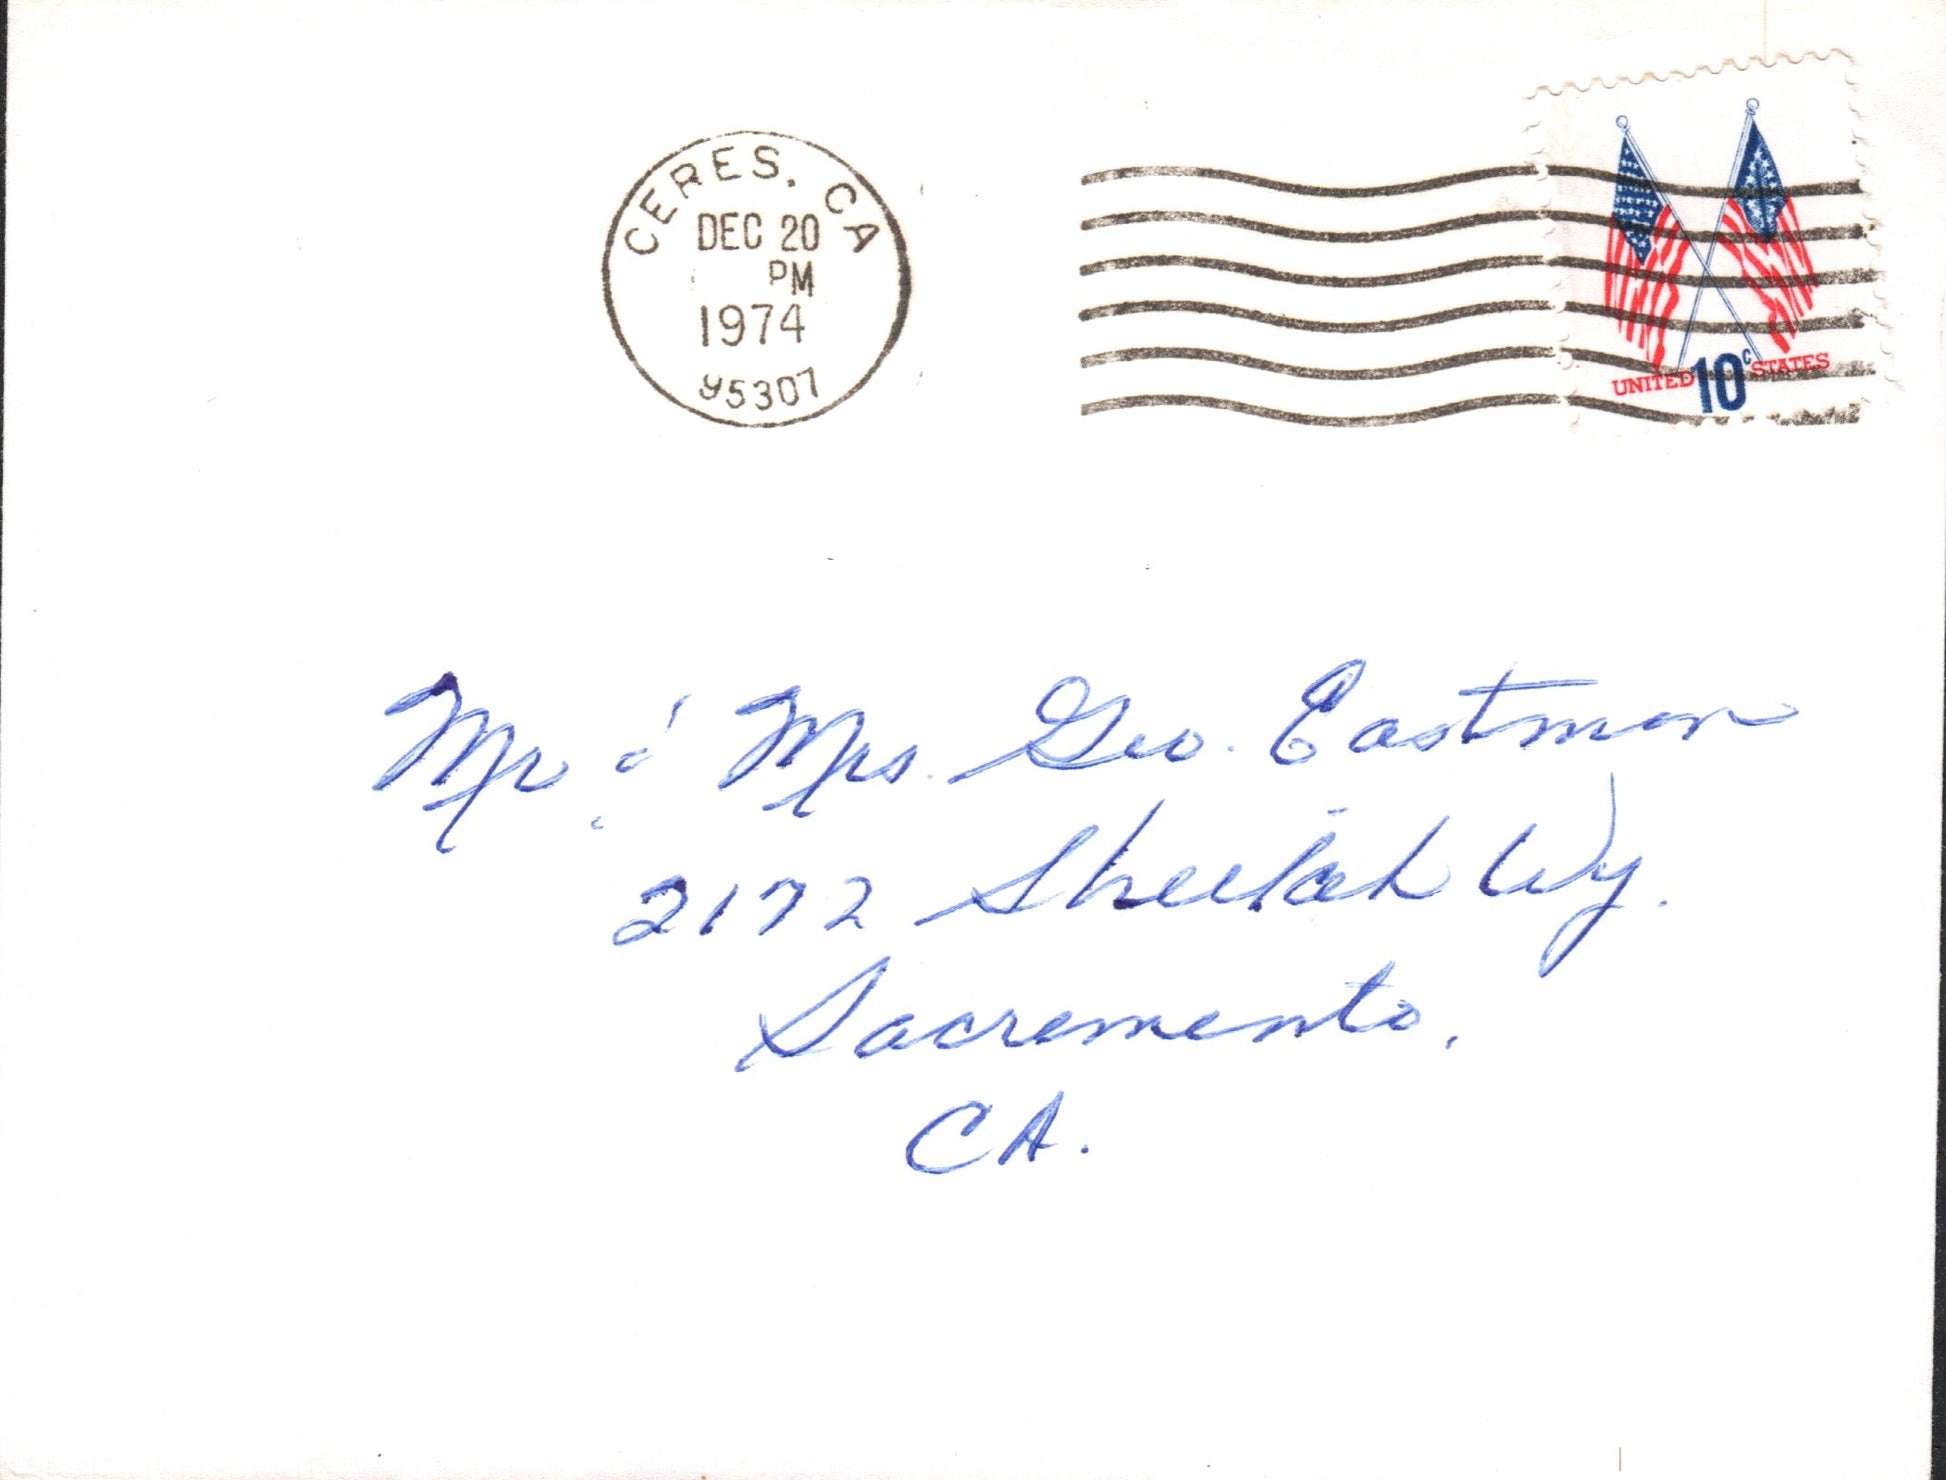 CERES, CA
DEC 20
PM
1974
95307
UNITED 10c STATES
Mr & Mrs. Geo. Eastman
2172 Sheilah Wy.
Sacramento,
CA.